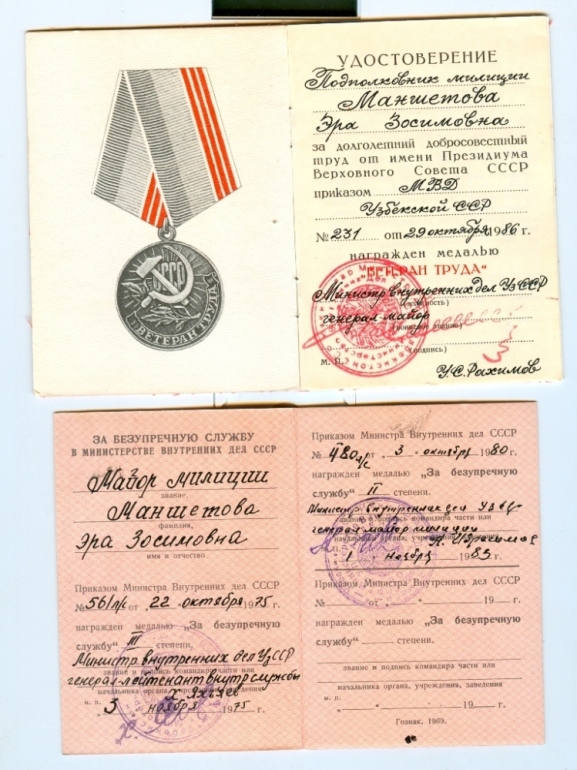 СССР
ВЕТЕРАН ТРУДА
УДОСТОВЕРЕНИЕ
Подполковник милиции
Маншетова
Эра Зосимовна
за долголетний добросовестный
труд от имени Президиума
Верховного Совета СССР
приказом МВД
Узбекской ССР
№ 231 от 29 октября 1986 г.
награжден медалью
"ВЕТЕРАН ТРУДА"
Министр внутренних дел УзССР
(должность)
генерал-майор
(воинское звание)
(подпись)
М. П.
У.С. Рахимов
ЗА БЕЗУПРЕЧНУЮ СЛУЖБУ
В МИНИСТЕРСТВЕ ВНУТРЕННИХ ДЕЛ СССР
Майор милиции
звание
Маншетова
фамилия
Эра Зосимовна
имя и отчество
Приказом Министра Внутренних дел СССР
№ 561 л/с от 22 октября 1975 г.
награжден медалью „За безупречную
службу" III степени.
Министр внутренних дел УзССР
звание и подпись командира части или
генерал-лейтенант внутр службы
начальника органа, учреждения, заведения
Х. Яхъяев
м. п. 3 ноября 1975 г.
Приказом Министра Внутренних дел СССР
№ 480 л/с от 3 октября 1980 г.
награжден медалью „За безупречную
службу" II степени.
Министр внутренних дел УзССР
звание и подпись командира части или
генерал-майор милиции
начальника органа, учреждения, заведения
1 ноября
Приказом Министра Внутренних дел СССР
№ от „ " 19 г.
награжден медалью „За безупречную
службу" степени.
звание и подпись командира части или
начальника органа, учреждения, заведения
м. п. „ " 19 г.
Гознак. 1969.